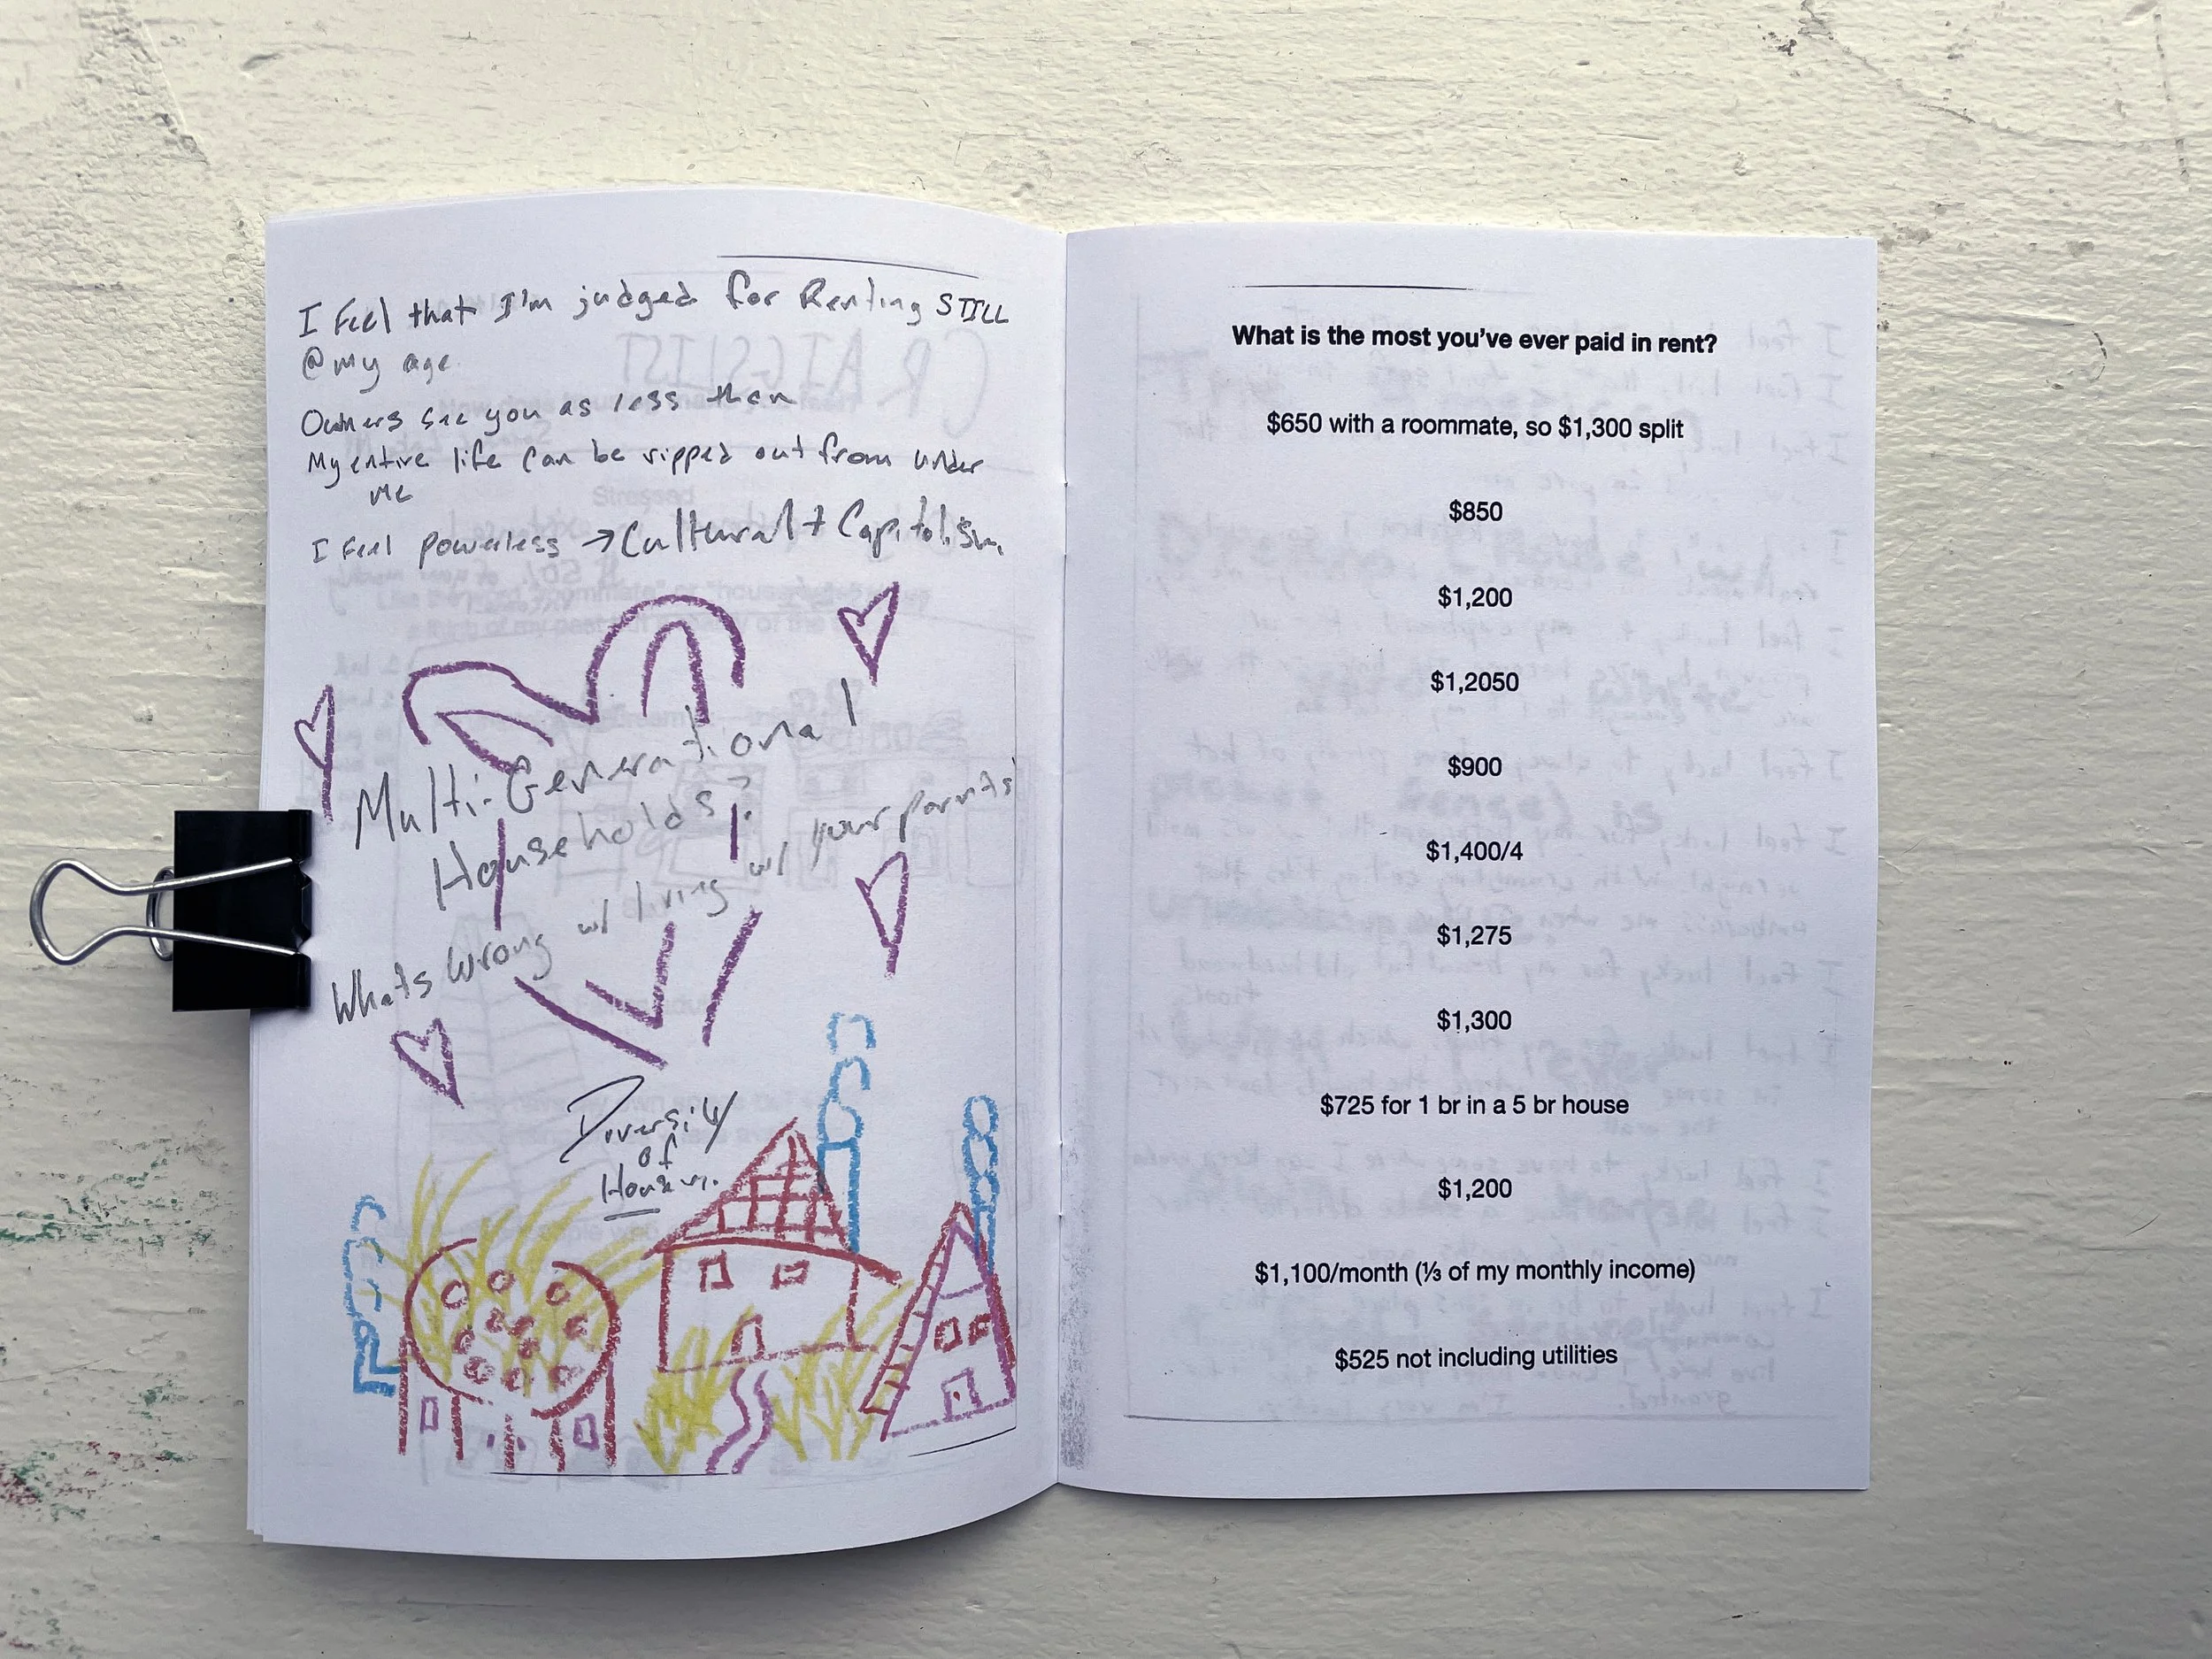 I feel that I'm judged for Renting STILL
@ my age
Owners see you as less then
My entire life can be ripped out from under
me
I feel powerless → Cultural + Capitolism
Multi-Generational
Households?
Whats wrong w/ living w/ your parents
Diversity
of
What is the most you've ever paid in rent?
$650 with a roommate, so $1,300 split
$850
$1,200
$1,2050
$900
$1,400/4
$1,275
$1,300
$725 for 1 br in a 5 br house
$1,200
$1,100/month (⅓ of my monthly income)
$525 not including utilities